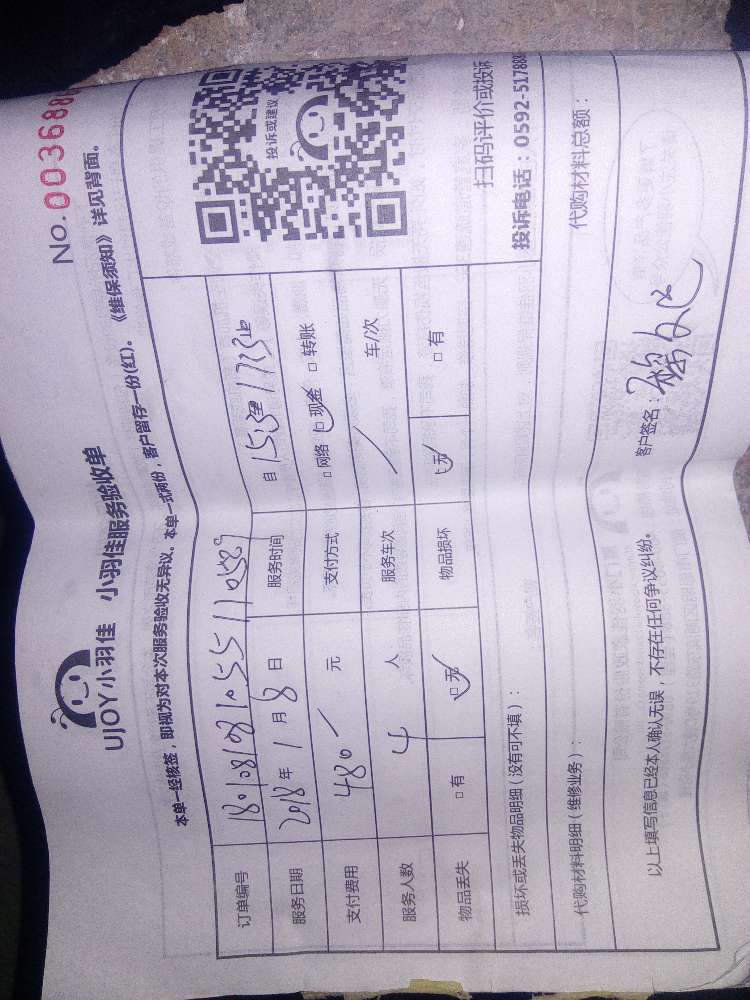 No.0036880
UJOY小羽佳 小羽佳服务验收单
本单一经核签，即视为对本次服务验收无异议。本单一式两份，客户留存一份(红)。《维保须知》详见背面。
订单编号
服务日期 2018年1月8日 服务时间 自
支付费用 480 元 支付方式 □网络 □现金 □转账
服务人数 4 人 服务车次 车/次
物品丢失 □有 □无 物品损坏 □无 □有
投诉或建议
扫码评价或投诉
投诉电话：0592-517888
损坏或丢失物品明细（没有可不填）：
代购材料明细（维修业务）： 代购材料总额：
以上填写信息已经本人确认无误，不存在任何争议纠纷。 客户签名：